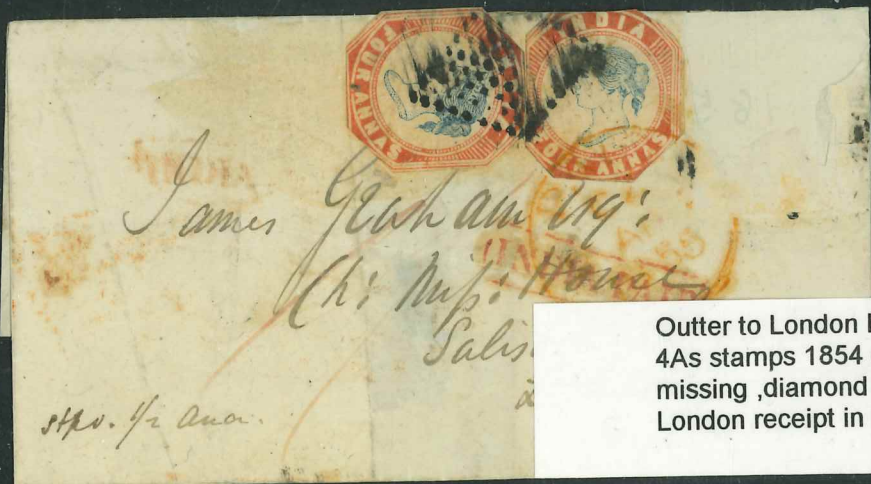 FOUR ANNAS
INDIA
FOUR ANNAS
James Graham Esqr.
Ch: Miss: House
Salis
stpd. 1/2 Anna.
INDIA
Outter to London
4As stamps 1854
missing ,diamond
London receipt in